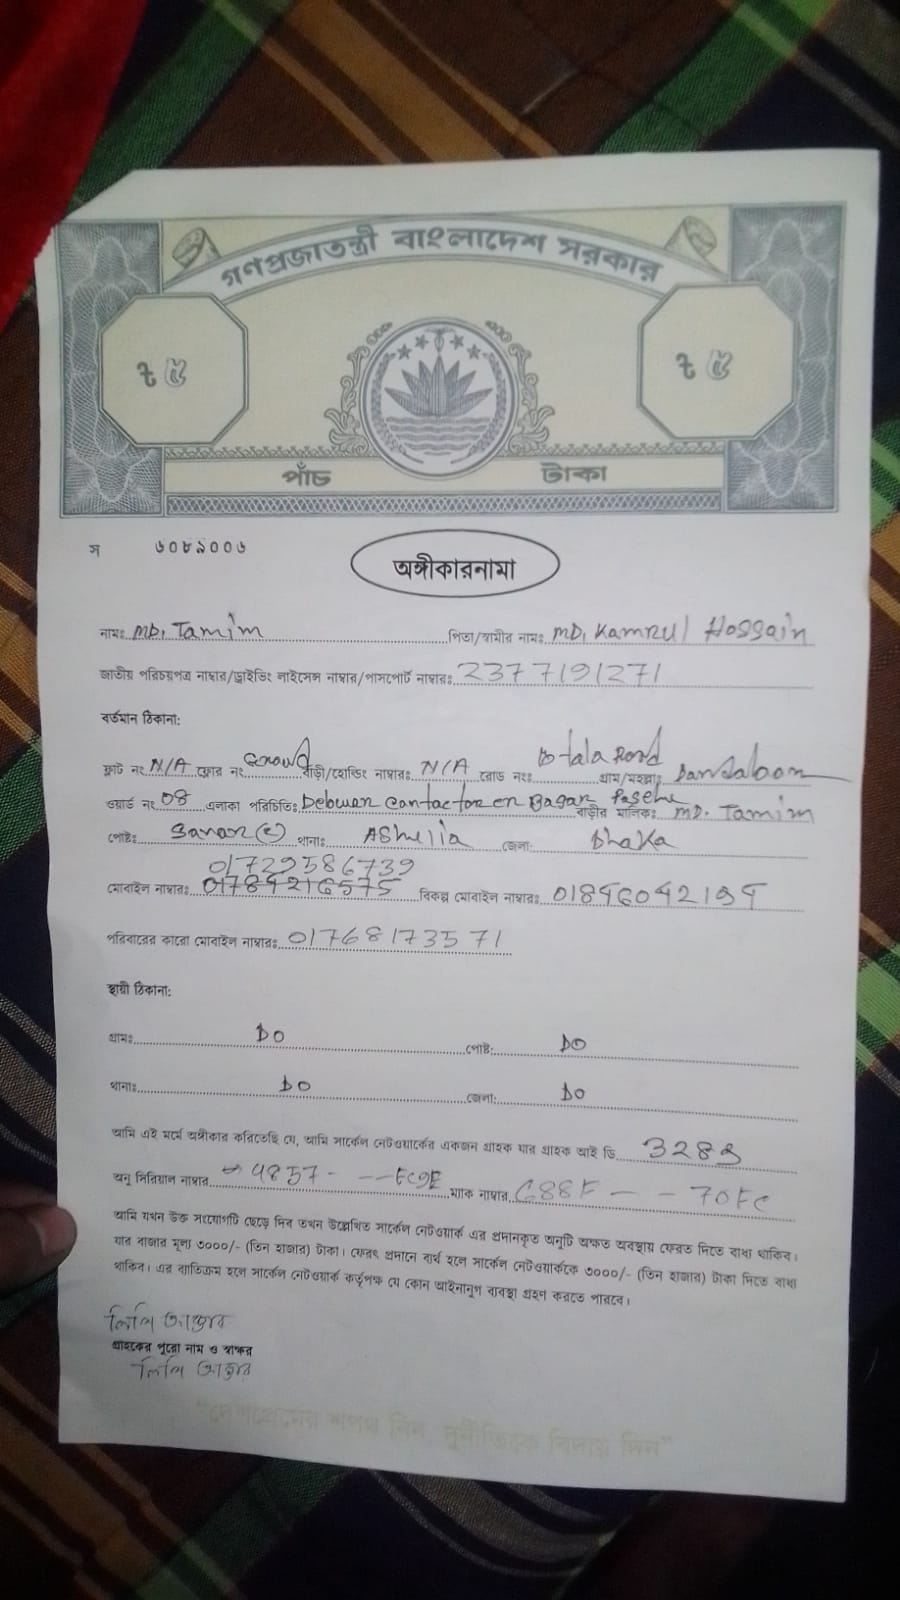 গণপ্রজাতন্ত্রী বাংলাদেশ সরকার
৳ ৫ ৳ ৫
পাঁচ টাকা
স ৬০৮৯০০৬
অঙ্গীকারনামা
নামঃ MD. Tamim পিতা/স্বামীর নাম: MD. Kamrul Hossain
জাতীয় পরিচয়পত্র নাম্বার/ড্রাইভিং লাইসেন্স নাম্বার/পাসপোর্ট নাম্বারঃ 2377191271
বর্তমান ঠিকানা:
ফ্লাট নং N/A ফ্লোর নং বাড়ী/হোল্ডিং নাম্বারঃ N/A রোড নংঃ tala Road গ্রাম/মহল্লা:
ওয়ার্ড নং 08 এলাকা পরিচিতি: Debwan Bagar Pashe বাড়ীর মালিক: MD. Tamim
পোষ্ট: Savar থানাঃ Ashulia জেলা: Dhaka
01729586739
মোবাইল নাম্বারঃ 01784216575 বিকল্প মোবাইল নাম্বারঃ
পরিবারের কারো মোবাইল নাম্বারঃ 01768173571
স্থায়ী ঠিকানা:
গ্রামঃ DO পোষ্ট: DO
থানাঃ DO জেলা: DO
আমি এই মর্মে অঙ্গীকার করিতেছি যে, আমি সার্কেল নেটওয়ার্কের একজন গ্রাহক যার গ্রাহক আই ডি
অনু সিরিয়াল নাম্বার 4857 - -- ম্যাক নাম্বার G88F - - 70FC
আমি যখন উক্ত সংযোগটি ছেড়ে দিব তখন উল্লেখিত সার্কেল নেটওয়ার্ক এর প্রদানকৃত অনুটি অক্ষত অবস্থায় ফেরত দিতে বাধ্য থাকিব।
যার বাজার মূল্য ৩০০০/- (তিন হাজার) টাকা। ফেরৎ প্রদানে ব্যর্থ হলে সার্কেল নেটওয়ার্ককে ৩০০০/- (তিন হাজার) টাকা দিতে বাধ্য
থাকিব। এর ব্যতিক্রম হলে সার্কেল নেটওয়ার্ক কর্তৃপক্ষ যে কোন আইনানুগ ব্যবস্থা গ্রহণ করতে পারবে।
লিপি আক্তার
গ্রাহকের পুরো নাম ও স্বাক্ষর
লিপি আক্তার
"দেশপ্রেমের শপথ নিন, দুর্নীতিকে বিদায় দিন"